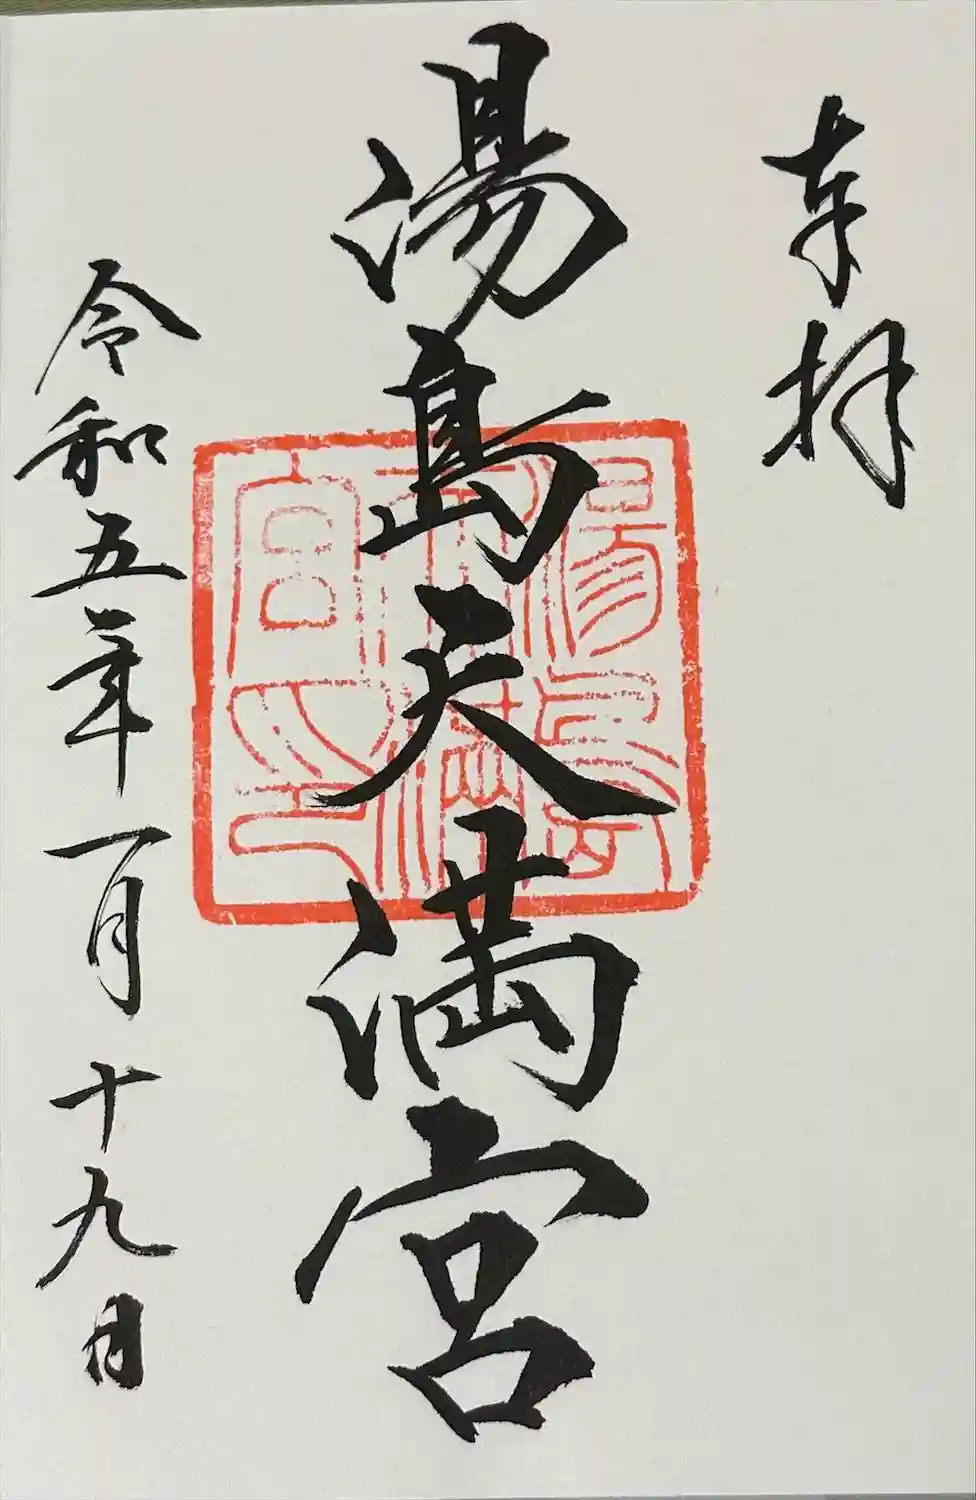 奉拝
湯島天満宮
湯島天満宮之印
令和五年一月十九日